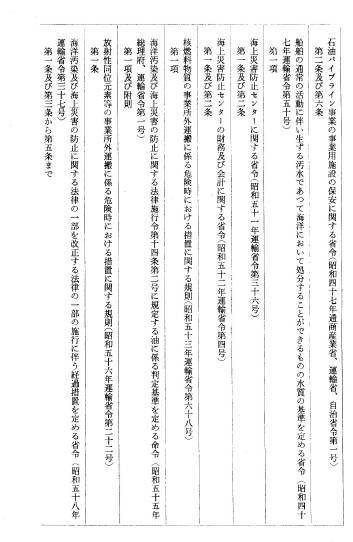 石油パイプライン事業の事業用施設の保安に関する省令（昭和四十七年通商産業省、運輸省、自治省令第一号）
第二条及び第六条
船舶の通常の活動に伴い生ずる汚水であつて海洋において処分することができるものの水質の基準を定める省令（昭和四十
七年運輸省令第五十号）
第一項
海上災害防止センターに関する省令（昭和五十一年運輸省令第三十六号）
第一条及び第二条
海上災害防止センターの財務及び会計に関する省令（昭和五十二年運輸省令第四号）
第一条及び第二条
核燃料物質の事業所外運搬に係る危険時における措置に関する規則（昭和五十三年運輸省令第六十八号）
第一項
海洋汚染及び海上災害の防止に関する法律施行令第十四条第二号に規定する油に係る判定基準を定める命令（昭和五十五年
総理府、運輸省令第一号）
第一項及び附則
放射性同位元素等の事業所外運搬に係る危険時における措置に関する規則（昭和五十六年運輸省令第二十二号）
第一条
海洋汚染及び海上災害の防止に関する法律の一部を改正する法律の一部の施行に伴う経過措置を定める省令（昭和五十八年
運輸省令第三十七号）
第一条及び第三条から第五条まで